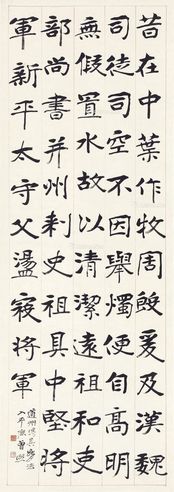 昔在中葉作牧周殷爰及漢魏
司徒司空不因舉燭便自高明
無假置水故以清潔遠祖和吏
部尚書并州刺史祖具中堅將
軍新平太守父盪寇將軍
道州
曾熙